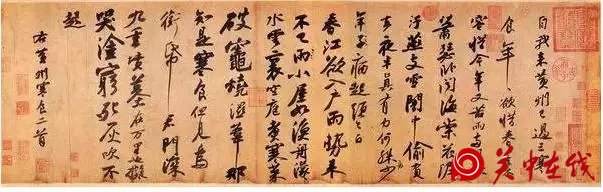 自我來黃州已過三寒
食年〻欲惜春〻去不
容惜今年又苦雨兩月秋
蕭瑟臥聞海棠花泥
汙燕支雪闇中偷負
去夜半真有力何殊少
年子病起頭已白
春江欲入戶雨勢來
不已小屋如漁舟濛〻
水雲裏空庖煮寒菜
破竈燒濕葦那
知是寒食但見烏
銜帋君門深
九重墳墓在万里也擬
哭塗窮死灰吹不
起
右黃州寒食二首
关中在线